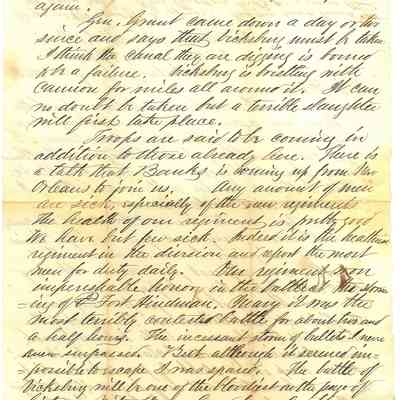 again.
Gen. Grant came down a day or two
since and says that Vicksburg must be taken.
I think the canal they are digging is bound
to be a failure. Vicksburg is bristling with
cannon for miles all around it. It can
no doubt be taken but a terrible slaughter
will first take place.
Troops are said to be coming in
addition to those already here. There is
a talk that Banks is coming up from New
Orleans to join us. Any amount of men
are sick, especially of the new regiments
the health of our regiment is pretty good
We have but few sick. Indeed it is the healthiest
regiment in the division and report the most
men for duty daily. Our regiment won
imperishable honor in the battle & the storm-
=ing of Fort Hindman. Mary it was the
most terribly contested battle for about two and
a half hours. The incessant storm of bullets I never
seen surpassed. But although it seemed im-
=possible to escape I was spared. The battle of
Vicksburg will be one of the bloodiest on the page of